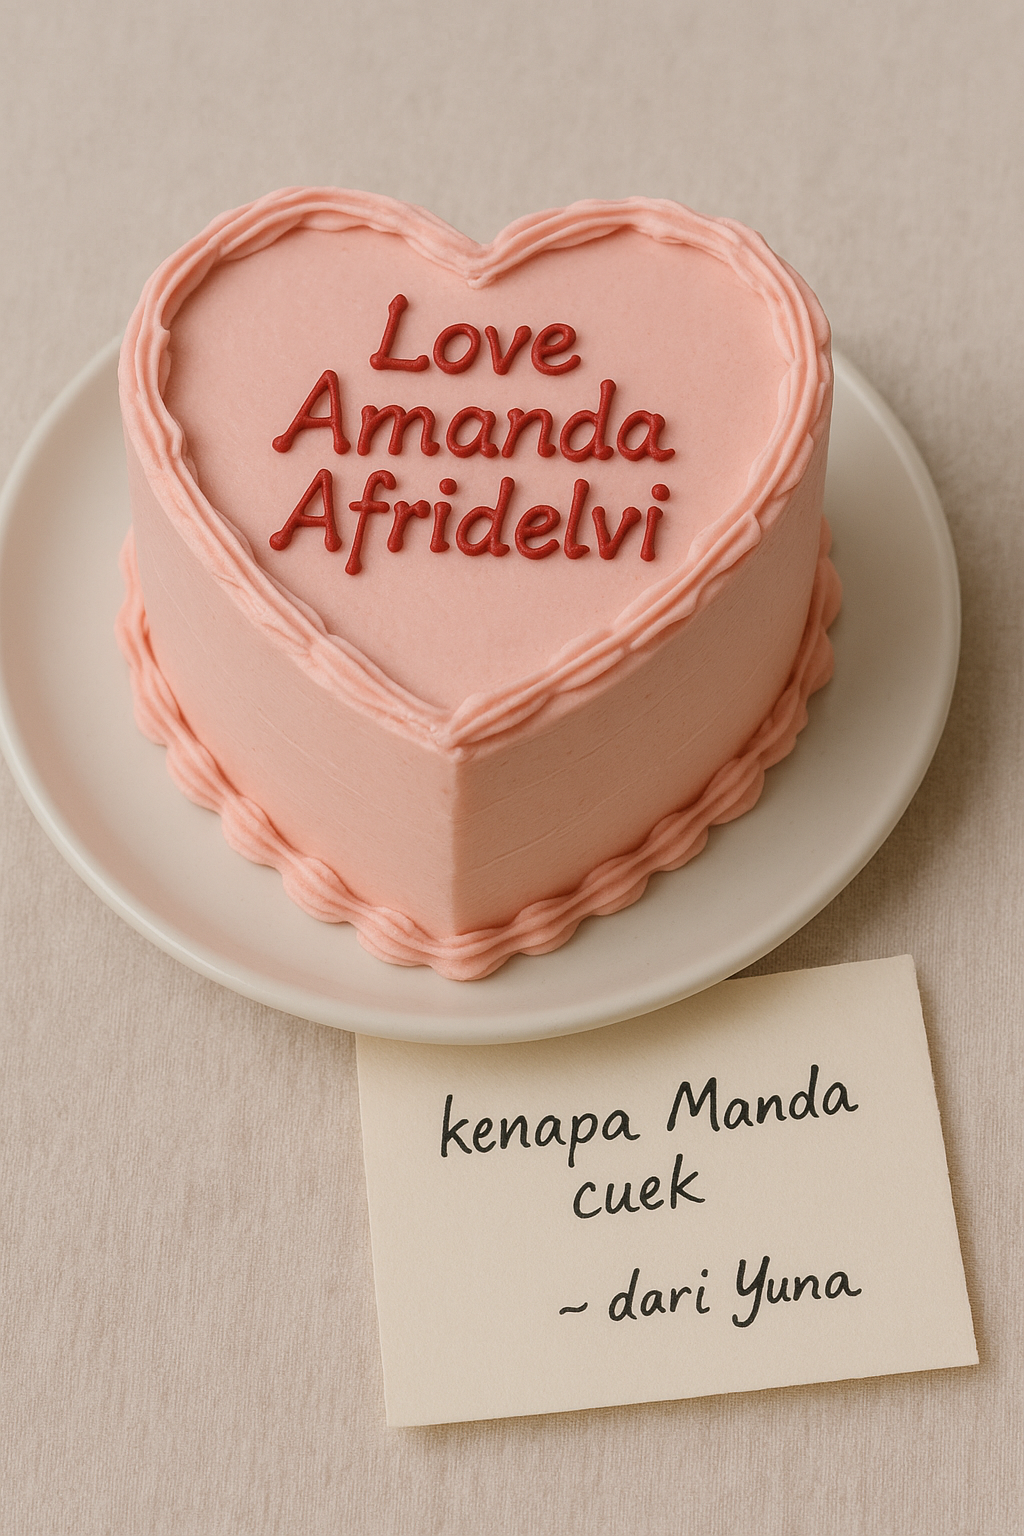 Love
Amanda
Afridelvi
kenapa Manda
cuek
~ dari Yuna